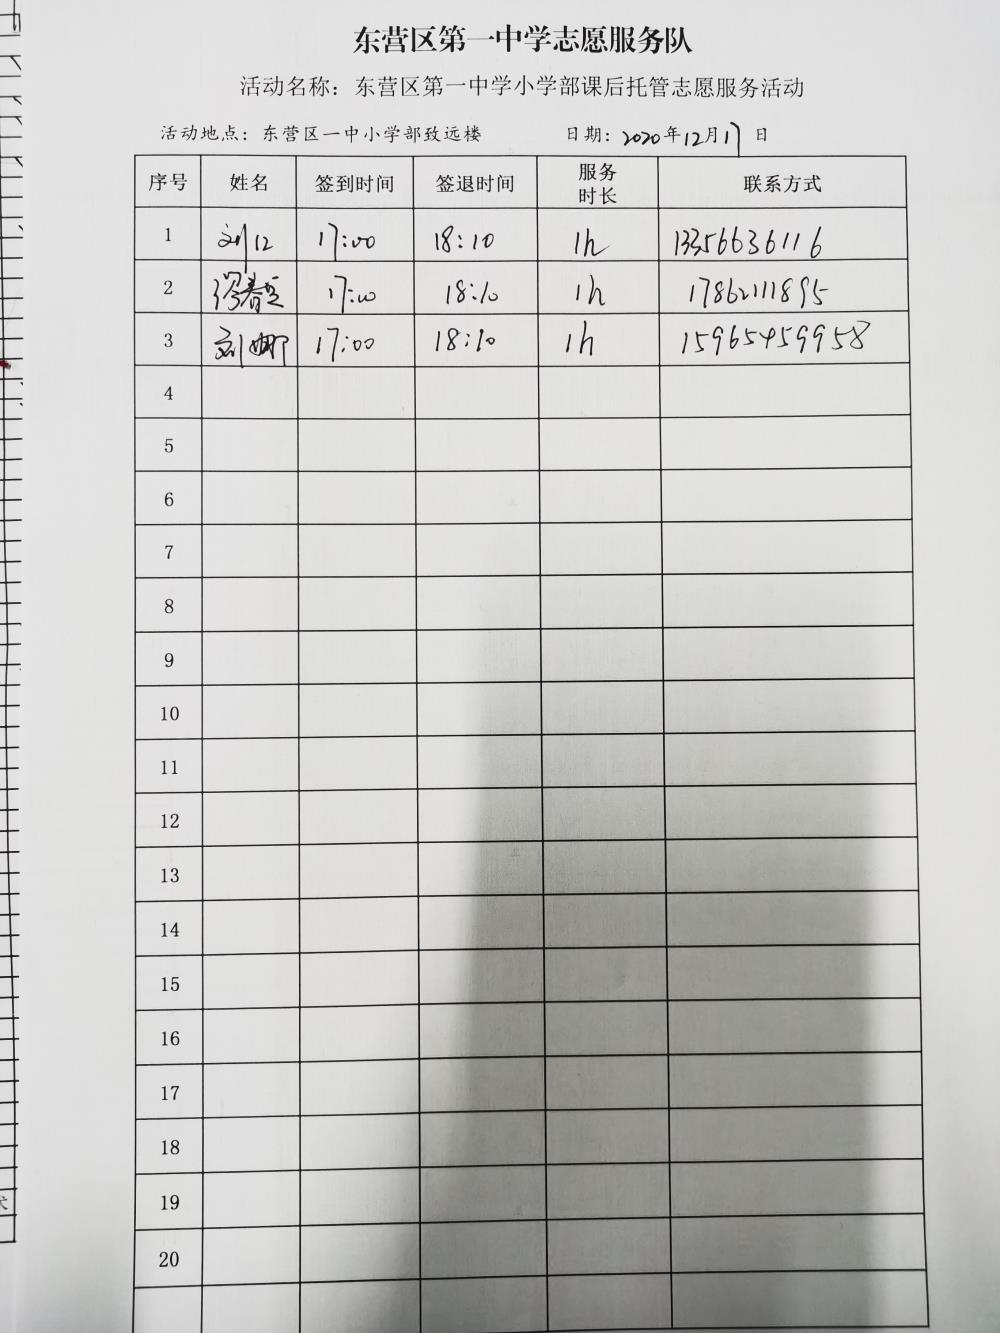 东营区第一中学志愿服务队
活动名称：东营区第一中学小学部课后托管志愿服务活动
活动地点：东营区一中小学部致远楼 日期：2020年12月17日
序号 姓名 签到时间 签退时间 服务时长 联系方式
1 刘 17:00 18:10 1h 13356636116
2 17:00 18:10 1h 17862111895
3 刘娜 17:00 18:10 1h 15965459958
4
5
6
7
8
9
10
11
12
13
14
15
16
17
18
19
20